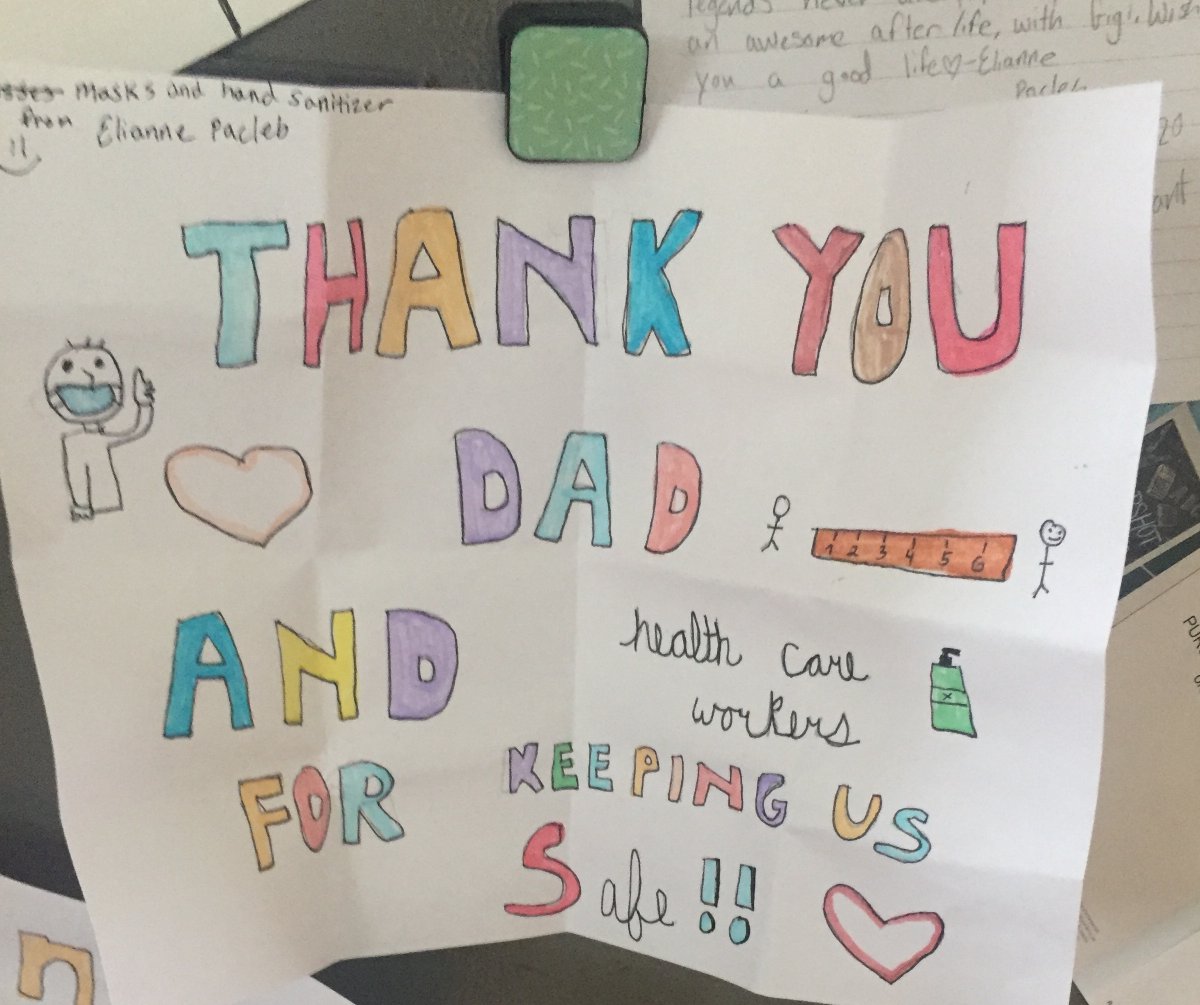 legends never
an awesome after life, with Gigi. Wish
you a good life♡-Elianne
Pacleb
masks and hand sanitizer
from Elianne Pacleb
THANK YOU
DAD
1 2 3 4 5 6
AND
health care
workers
FOR KEEPING US
Safe!!